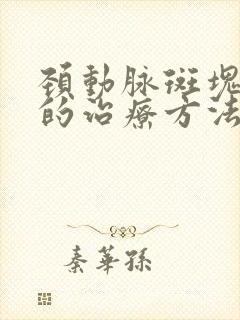 頚動脉斑塊
的治療方法
秦華孫